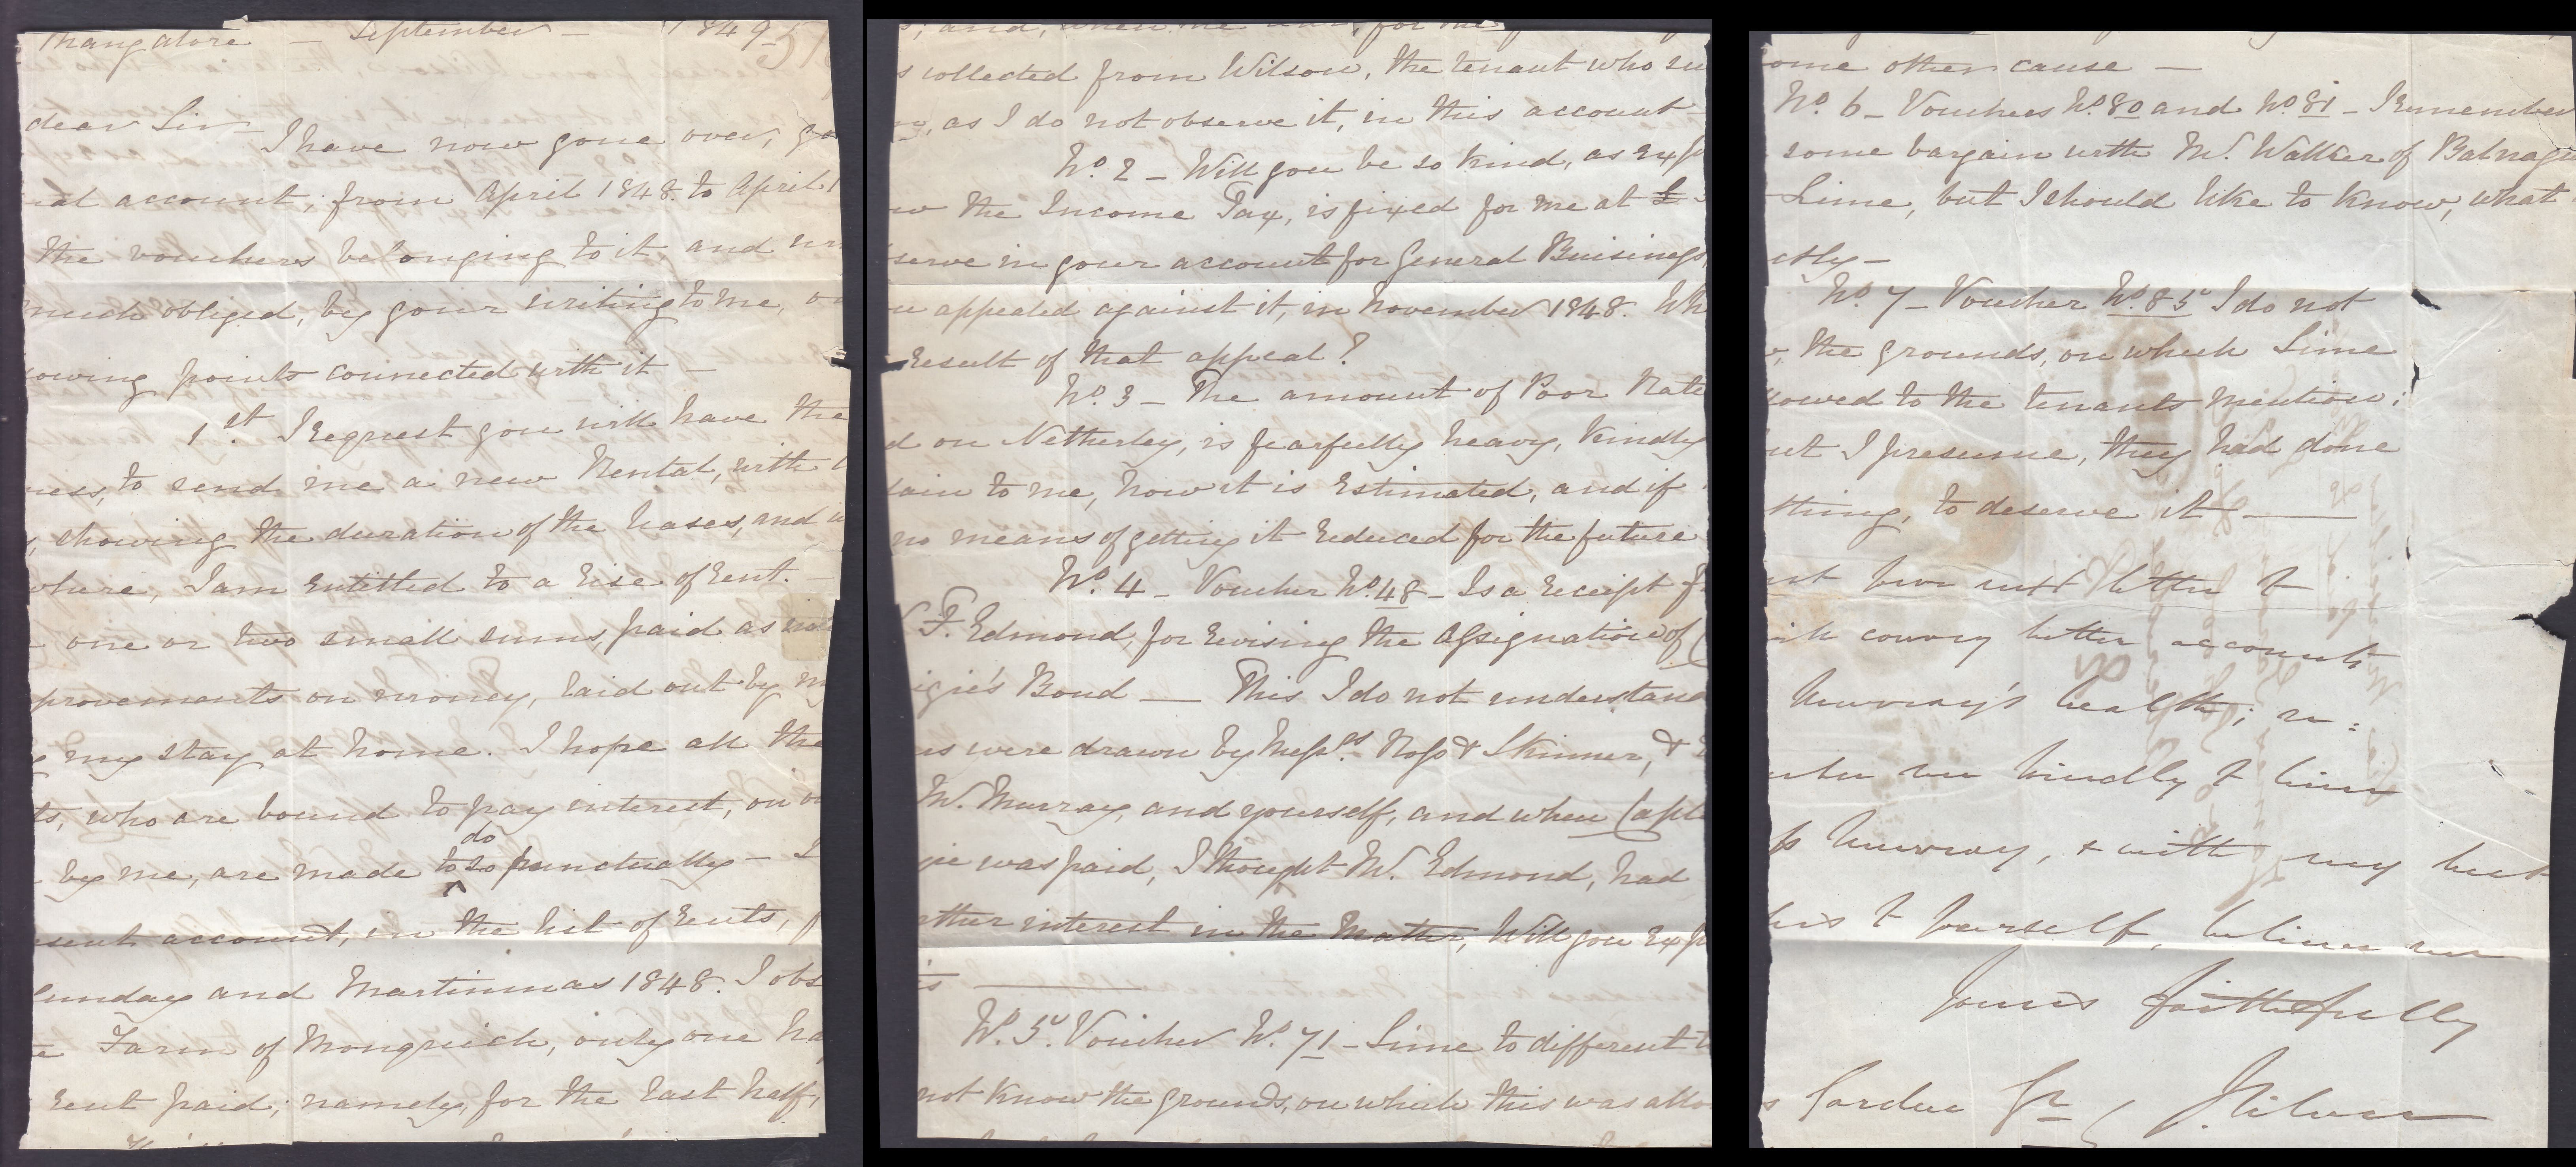 Mangalore — September — 1849
dear Sir
I have now gone over, yo
ual account, from April 1848. to April 1
the vouchers belonging to it, and
much obliged, by your writing to me, o
owing points connected with it —
1st. I request you will have the
ness, to send me a new Rental, with
, showing the duration of the leases, and w
where, I am entitled to a rise of rent. —
one or two small sums, paid as
provements on money, laid out by m
g my stay at home. I hope all the
ts, who are bound to pay interest, on
do
by me, are made to so punctually — I
esent account, in the list of rents, f
sunday and Martinmas 1848. I obs
e Farm of Mongreich, only one ha
rent paid; namely, for the last half,
s, and, when
, for the
s collected from Wilson, the tenant who su
, as I do not observe it, in this account —
No. 2 — Will you be so kind, as exp
ow the Income Tax, is fixed for me at £
serve in your account for General Buisiness,
u appealed against it, in November 1848. Wh
result of that appeal?
No. 3 — The amount of Poor Rate
d on Netherley, is fearfully heavy, kindly
lain to me, how it is estimated, and if
no means of getting it reduced for the future
No. 4 — Voucher No. 48 — Is a receipt f
F. Edmond, for revising the Assignation of
igie's Bond — This I do not understand
us were drawn by Messrs. Ross & Skinner, &
Mr. Murray, and yourself, and when Capt
gie was paid, I thought Mr. Edmond, had
rther interest in the matter, Will you exp
is —
No. 5. Voucher No. 71 — Lime to different t
not know the grounds, on which this was allo
ome other cause —
No. 6 — Vouchers No. 80 and No. 81 — I remember
some bargain with Mr. Walker of Balnagu
Lime, but I should like to know, what
ctly —
No. 7 — Voucher No. 85 I do not
w, the grounds, on which Lime
lowed to the tenants mention:
ut I presume, they had done
thing, to deserve it —
next letter to
ill convey better accounts
Murray's health; re:
mber me kindly to him
rs Murray, & with my best
hes to yourself, believe me
yours faithfully
Carden Jr